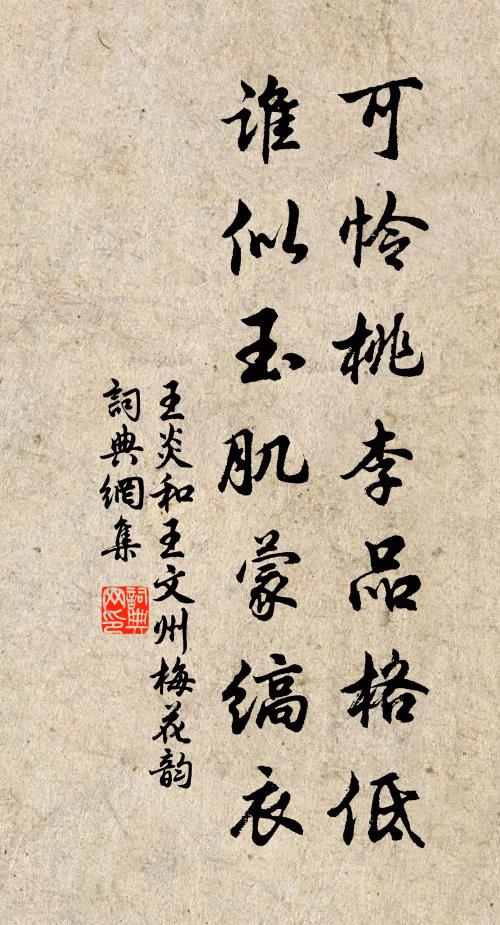 可怜桃李品格低
誰似玉肌蒙縞衣
王炎和王文州梅花韵
詞典網集
詞典网印